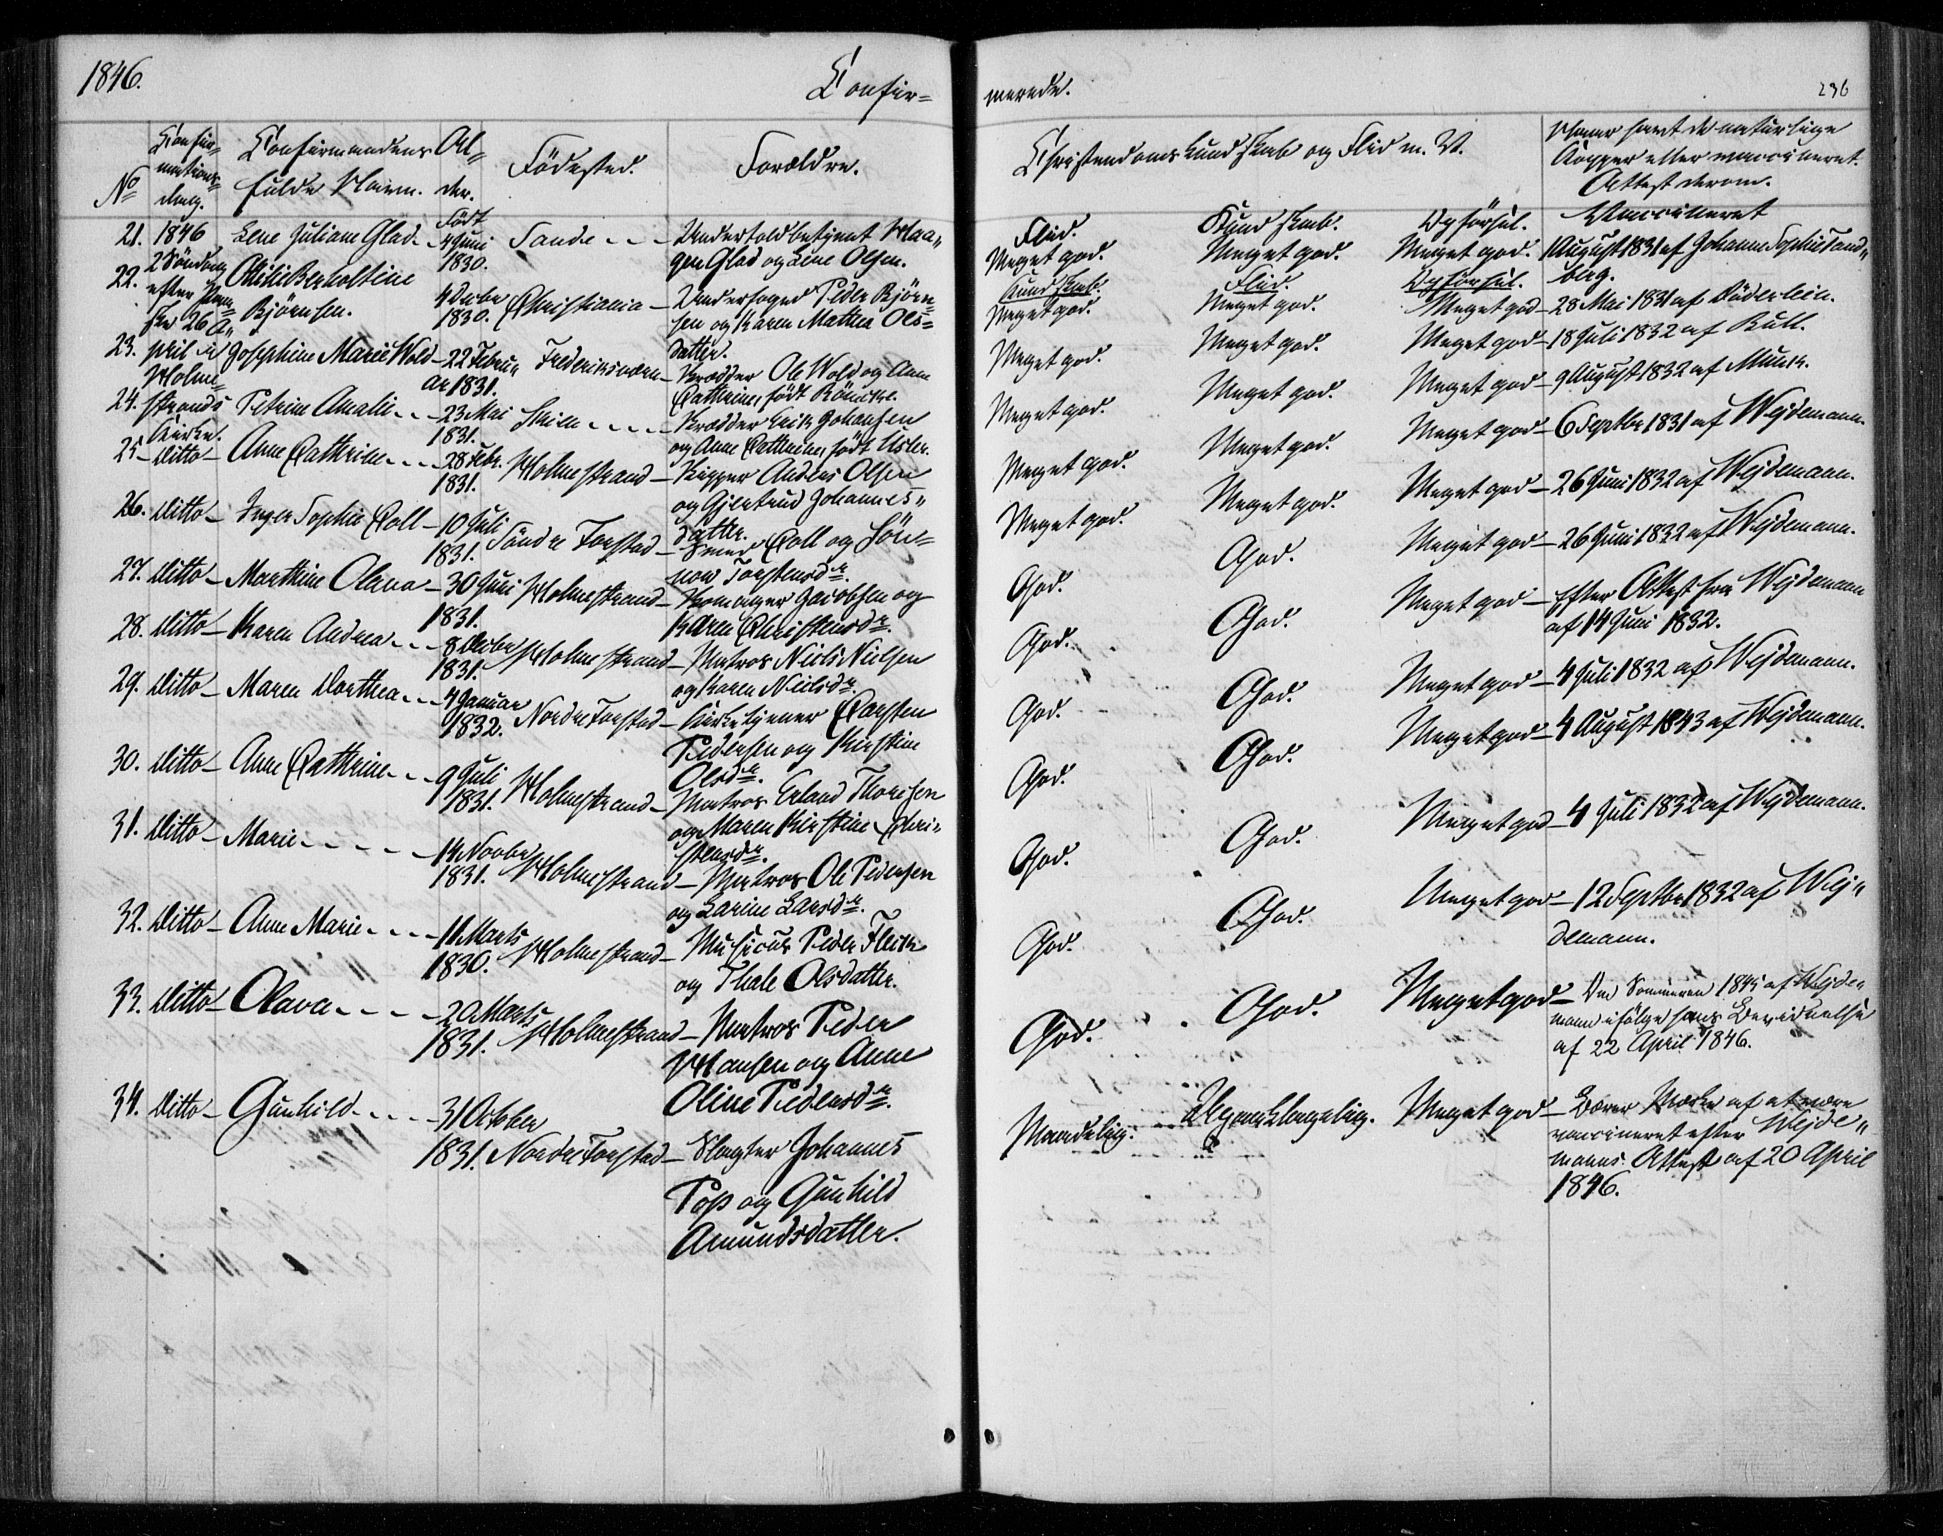 1846.
Confir=
merede.
236
No
Confir=
mations=
dag.
Confirmandens
fulde Navn.
Al=
der.
Födested.
Forældre.
Christendoms Kundskab og Flid m. V.
Naar havt de naturlige
Kopper eller vaccineret.
Attest derom.
21. 1846 Lene Juliane Glad Födt 4 Juni 1830. Sande Undertoldbetjent Haa=
gen Glad og Line Olsen.
Flid. Kundskab. Opförsel. Vaccineret
Meget god. Meget god. Meget god. 1 August 1831 af Johanne Sophie Sand=
berg.
2 Söndag
efter Paa=
ske 26 A=
pril i
Holme=
strands
Kirke.
22. Ottilie Bertoltine
Björnsen. 4 Decbr 1830. Christiania Underfoged Peder Björn=
sen og Karen Mathea Ols=
datter.
Kundskab. Flid. Opförsel.
Meget god. Meget god. Meget god 28 Mai 1831 af Döderlein.
23. Josephine Marie Wold 22 Februar 1831. Frederiksværn Kræmmer Ole Wold og Anne
Cathrine, födt Rönicke.
Meget god. Meget god. Meget god 18 Juli 1832 af Bull.
24. Petrine Amalie 23 Mai 1831. Skien Kræmmer Erik Johansen
og Anne Cathrine, födt Usler.
Meget god. Meget god. Meget god 9 August 1832 af Munk.
25. Ditto Anne Cathrine 28 Febr. 1831. Holmestrand Kipper Anders Olsen
og Gjertrud Johannes=
datter.
Meget god. Meget god. Meget god 6 Septbr 1831 af Wejdemann.
26. Ditto Inger Sophie Coll 10 Juli 1831. Söndre Forstad Smed Coll og Gön=
nor Torstensdr.
Meget god. Meget god. Meget god 26 Juni 1832 af Wejdemann.
27. Ditto Marthine Olava 30 Juni 1831. Holmestrand Skomager Jacobsen og
Karen Christensdr.
God. God. Meget god 26 Juni 1832 af Wejdemann.
28. Ditto Karen Andrea 8 Decbr 1831. Holmestrand Matros Niels Nielsen
og Karen Nielsdr.
God. God. Meget god Efter Attest fra Wejdemann
af 14 Juni 1832.
29. Ditto Maren Dorthea 4 Januar 1832. Nordre Forstad Kirketjener Carsten
Pedersen og Kirstine
Olsdr.
God. God. Meget god 4 Juli 1832 af Wejdemann.
30. Ditto Anne Cathrine 9 Juli 1831. Holmestrand Matros Erland Thoresen
og Maren Kirstine Chri=
stensdr.
God. God. Meget god 4 August 1843 af Wejdemann.
31. Ditto Marie 14 Novbr 1831. Holmestrand Matros Ole Pedersen
og Karine Larsdr.
God. God. Meget god 4 Juli 1832 af Wejdemann.
32. Ditto Anne Marie 11 Marts 1830. Holmestrand Musicus Peder Fleik
og Thale Olsdatter.
God. God. Meget god 12 Septbr 1832 af Wej=
demann.
33. Ditto Olava 22 Marts 1831. Holmestrand Matros Peder
Hansen og Anne
Oline Pedersdr.
God. God. Meget god Om Sommeren 1845 af Wejde=
mann ifölge hans Bevidnelse
af 22 April 1846.
34. Ditto Gunhild 31 October 1831. Nordre Forstad Slagter Johannes
Pop og Gunhild
Amundsdatter.
Maadelig. Ugankelagelig. Meget god Bærer Mærke af at være
vaccineret efter Wejde=
manns Attest af 20 April
1846.